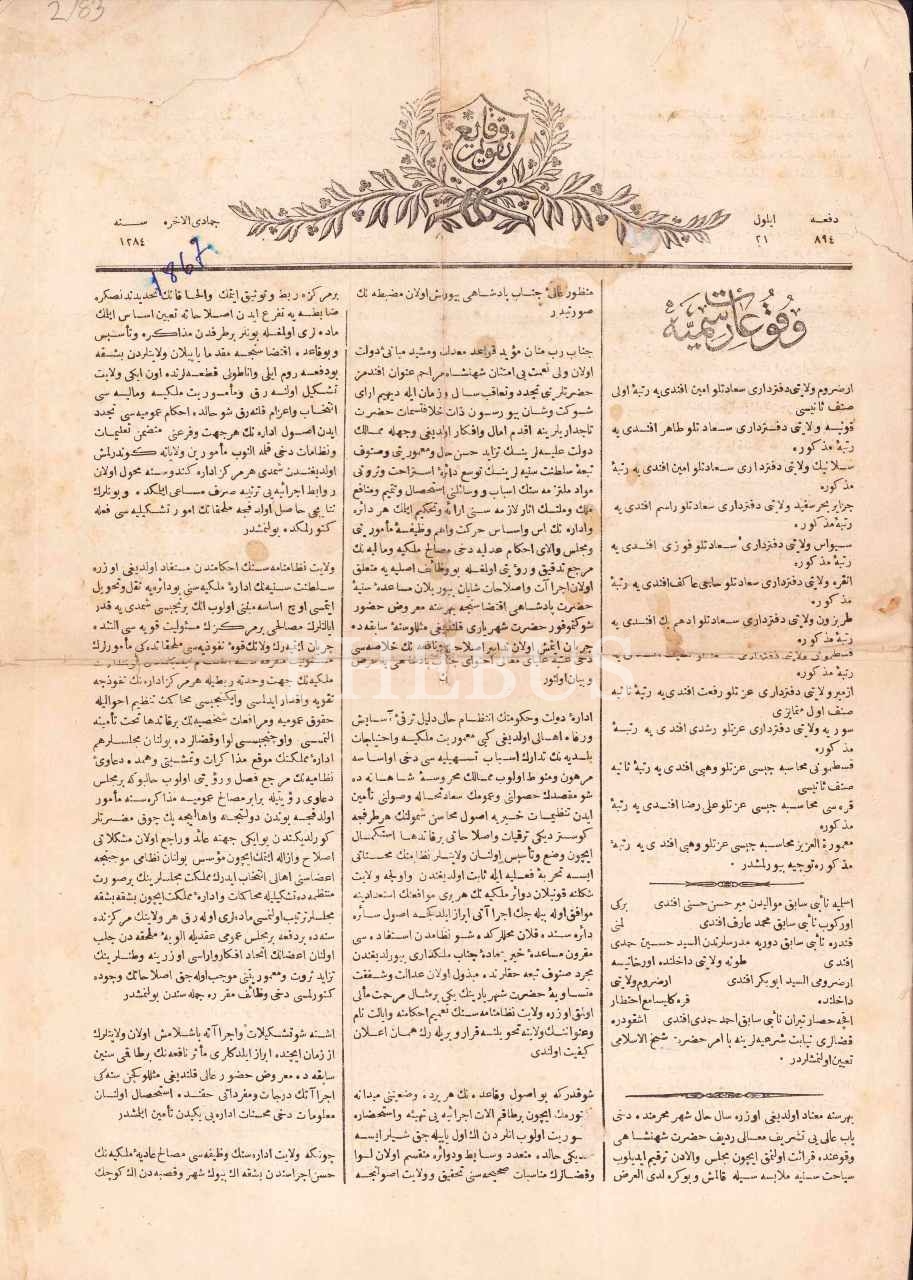 2/83
تقويم وقايع
دفعه
٨٩٤
ايلول
٢١
جمادى الاخره
سنه
١٢٨٤
1867
وقوعات رسميه
ارضروم ولايتى دفتردارى سعادتلو امين افندى يه رتبۀ اولى
صنف ثانيسى
قونيه ولايتى دفتردارى سعادتلو طاهر افندى يه
رتبۀ مذكوره
سلانيك ولايتى دفتردارى سعادتلو امين افندى يه رتبۀ
مذكوره
جزاير بحر سفيد ولايتى دفتردارى سعادتلو راسم افندى يه
رتبۀ مذكوره
سيواس ولايتى دفتردارى سعادتلو فوزى افندى يه
رتبۀ مذكوره
انقره ولايتى دفتردارى سعادتلو حاجى عاكف افندى يه رتبۀ
مذكوره
طربزون ولايتى دفتردارى سعادتلو ادهم بك افندى يه
رتبۀ مذكوره
قسطمونى ولايتى دفتردارى سعادتلو
رتبۀ مذكوره
ازمير ولايتى دفتردارى عزتلو رفعت افندى يه رتبۀ ثانيه
صنف اول متمايزى
سوريه ولايتى دفتردارى عزتلو رشدى افندى يه رتبۀ
مذكوره
قسطمونى محاسبه جيسى عزتلو وهبى افندى يه رتبۀ ثانيه
صنف ثانيسى
قره سى محاسبه جيسى عزتلو على رضا افندى يه رتبۀ
مذكوره
معمورة العزيز محاسبه جيسى عزتلو وهبى افندى يه رتبۀ
مذكوره توجيه بيورلمشدر
اسلميه نائبى سابق مواليدن مير حسن حسنى افندى بركى
اوركوب نائبى سابق محمد عارف افندى لمنى
قندره نائبى سابق دوريه مدرسلرندن السيد حسين حمدى
افندى طونه ولايتى داخلنده اورخانيه
ارضرومى السيد ابوبكر افندى ارضروم ولايتى
داخلنده قره كليسا مع انتظار
اقچه حصار تيران نائبى سابق احمد حمدى افندى اشقودره
قضالرى نيابت شرعيه لرينه با امر حضرت شيخ الاسلامى
تعيين اولنمشلردر
بهر سنه معتاد اولديغى اوزره سال حال شهر محرمنده دخى
باب عالى يى تشريف معالى رديف حضرت شهنشاهى
وقوعنده قرائت اولنمق ايچون مجلس والادن ترقيم ايديلوب
سياحت سنيه ملابسه سيله قالمش و بوكره لدى العرض
منظور عالئ جناب پادشاهى بيورلمش اولان مضبطه نك
صورتيدر
جناب رب منان مؤيد قواعد معدلت ومشيد مبانئ دولت
اولان ولى نعمت بى امتنان شهنشاه مراحم عنوان افندمز
حضرتلرينى تجدد وتعاقب سال و زمان ايله ديهيم آراى
شوكت وشان بيورسون ذات خلافتسمات حضرت
تاجداريلرينه اقدم امال وافكار اولديغى وجهله ممالك
دولت عليه لرينك تزايد حسن حال ومعموريتى وصنوف
تبعۀ سلطنت سنيه لرينك توسع دائرۀ استراحت وثروتى
مواد ملتزمه سنك اسباب و وسائلنى استحصال وتتميم ومنافع
ملك وملتك اثار لازمه سنى ارائه وتحكيم ايلك هر دائره
واداره نك اس واساس حركت واهم وظيفۀ مأموريتى
ومجلس والاى احكام عدليه دخى مصالح ملكيه وماليه نك
مرجع تدقيق و رؤيتى اولمغله بو وظائف اصليه يه متعلق
اولان اجراآت واصلاحات شايان بيوريلان مساعدۀ سنيۀ
حضرت پادشاهى اقتضاسنجه بهر سنه معروض حضور
شوكتموفور حضرت شهريارى قلنديغى مثللو سنۀ سابقه ده
جريان ايتمش اولان تدابير اصلاحيۀ نافعه نك خلاصه سى
دخى عتبۀ علياى معدلت احتواى جناب پادشاهى يه عرض
وبيان اولنور
ادارۀ دولت وحكومتك انتظام حالى دليل ترقئ آسايش
ورفاه اهالى اولديغى كبى معموريت ملكيه واحتياجات
بلديه نك تدارك اسباب تسهيليه سى دخى اواساسه
مرهون ومنوط اولوب ممالك محروسۀ شاهانه ده
شو مقصدك حصولنى وعمومك سعادتحاله وصولنى تأمين
ايدن تنظيمات خيريه اصول محاسن شمولنك هر طرفجه
كوستردیكى ترقيات واصلاحاتى برقاتدها استكمال
ايچون وضع وتأسيس اولنان ولايتلر نظامنك محسناتى
ايسه تجربۀ فعليه ايله ثابت اولديغندن واولجه ولايت
شكلنه قونيلان دوائر ملكيه نك هر برى موافقك استعدادينه
موافق اوله بيله جك اجراآتى ابراز ايلدكجه اصول سائره
دائره سنده قلان محللركده شو نظامدن استفاده سى
مقرون مساعدۀ خيريتماده جناب ملكدارى بيورلديغندن
مجرد صنوف تبعه حقلرنده مبذول اولان عدالت وشفقت
متساويۀ حضرت شهرياريسنك يكى بر مثال مرحمت مآلى
اولمق اوزره ولايت نظامنامه سنك تعميم احكامنه وايالت نام
وعنواننك ولايته تحويلنه قرار ويريله رك همان اعلان
كيفيت اولندى
شو قدركه بو اصول وقاعده نك هر يرده وضعيتنى ميدانه
كتورمك ايچون برطاقم آلات اجرائيه يى تهيئه واستحضاره
ضرورت اولوب انلردن اك اول ياپيله جق شيلر ايسه
شمديكى حالده متعدد وسايط ودوائره منقسم اولان لوا
وقضالرك مناسبات صحيحه سنى تحقيق وولايت اصولنجه
بر مركزه ربط وتوثيق ايتمك والحاقاتك تحديدندنصكره
ضابطه يه تفرع ايدن اصلاحاته تعيين اساس ايلمك
ماده لرى اولمغله بونلر بر طرفدن مذاكره وتأسيس
وبو قاعده اقتضاسنجه مقدما ياپيلان ولايتلردن بشقه
بودفعه روم ايلى واناطولى قطعه لرنده اون ايكى ولايت
تشكيل اولنه رق ومأموريت ملكيه وماليه سى
انتخاب واعزام قلنه رق شو حالده احكام عموميه سى تجدد
ايدن اصول اداره نك هر جهت وفرعنى متضمن تعليمات
ونظامات دخى قلمه آلنوب مأمورين ولاياته كوندرلمش
اولديغندن شمدى هر مركز اداره كندوسنه محول اولان
روابط اجرائيه يى ترتيبه صرف مساعى ايلمكده وبونلرك
نتايجى حاصل اولدقجه ملحقاتك امور تشكيليه سى فعله
كتورلمكده بولنمشدر
ولايت نظامنامه سنك احكامندن مستفاد اولديغى اوزره
سلطنت سنيه نك ادارۀ ملكيه سنى بودائره يه نقل وتحويل
ايتمسى اوچ اساسه مبنى اولوب انك برنجيسى شمدى يه قدر
ايالتلرك مصالحى بر مركزك مسئوليت قويه سى التنده
جريان ايتديكه رك ولاتك قوۀ نفوذيه سى ملحقاتده كى مأمورلرك
ملكيه نك جهت وحدته ربطيله هر مركز اداره نك نفوذجه
تقويه واقدار ايدلمسى وايكنجيسى محاكمك تنظيم احواليله
حقوق عموميه ومرافعات شخصيه نك برقاتدها تحت تأمينه
النمسى واوچنجيسى لوا وقضالرده بولنان مجلسلر هم
ادارۀ مملكتك موقع مذاكرات وتمشيتى وهمده دعاوئ
نظاميه نك مرجع فصل و رؤيتى اولوب حالبوكه بر مجلس
دعاوى رؤيتيله برابر مصالح عموميه مذاكره سنه مأمور
اولدقجه بوندن دولتجه واهاليجه بك چوق مضرتلر
كورلديكندن بو ايكى جهته عائد و راجع اولان مشكلاتى
اصلاح وازاله ايتمك ايچون مؤسس بولنان نظامى موجبنجه
اعضاسنى اهالى انتخاب ايدرك مملكت مجلسلرينك بر صورت
منتظمه ده تشكيليله محاكمات وادارۀ مملكت ايچون بشقه بشقه
مجلسلر ترتيب اولنمسى ماده لرى اوله رق هر ولايتك مركزنده
سنه ده بر دفعه بر مجلس عمومى عقديله الويۀ ملحقه دن جلب
اولنان اعضانك اتحاد افكار وآراسى اوزرينه وطنلرينك
تزايد ثروت ومعموريتنى موجب اوله جق اصلاحاتك وجوده
كتورلمسى دخى وظائف مقرره جمله سندن بولنمشدر
اشته شو تشكيلات واجراآته باشلامش اولان ولايتلرك
از زمان ايچنده ابراز ايلدكلرى مآثر نافعه نك برطاقى سنين
سابقه ده معروض حضور عالى قلنديغى مثللو كچن سنه كى
اجراآتك درجات ومفرداتى حقنده استحصال اولنان
معلومات دخى محسنات اداره يى يكيدن تأمين ايلمشدر
چونكه ولايت اداره سنك وظيفه سى مصالح عاديۀ ملكيه نك
حسن اجراسندن بشقه اك بيوك شهر وقصبه دن اك كوچك
PHEBUS